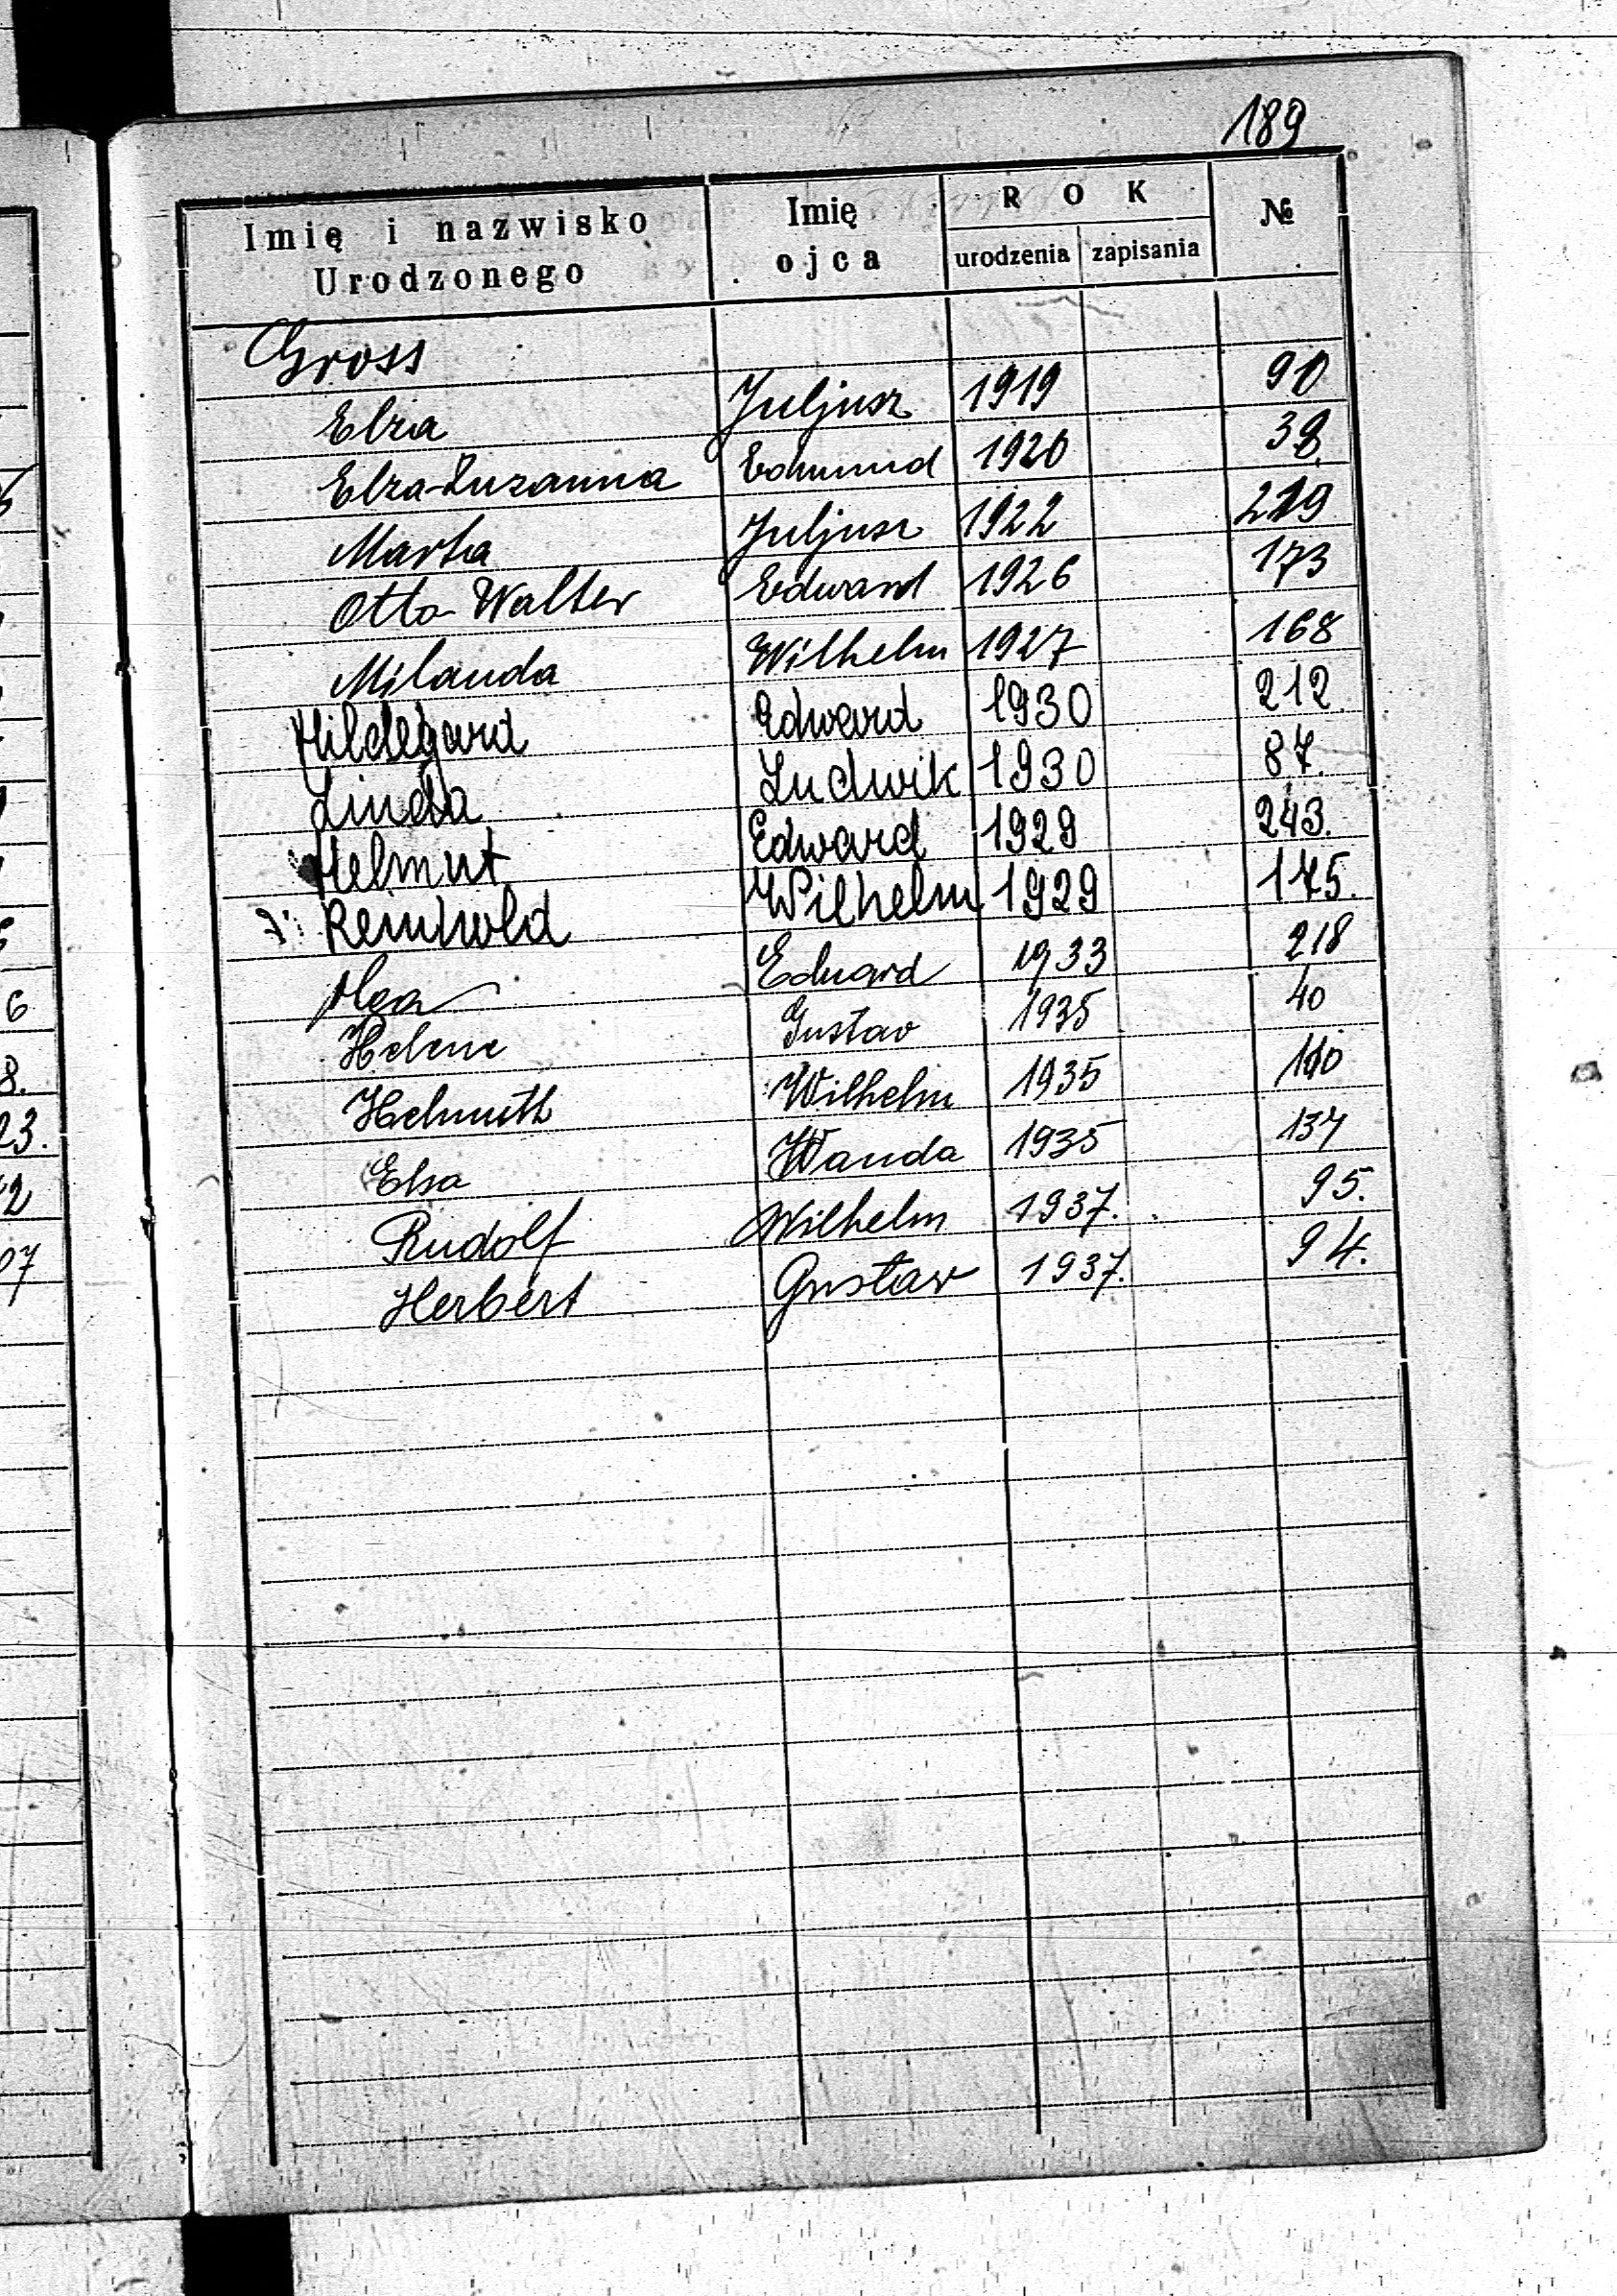 189
Imię i nazwisko Urodzonego Imię ojca ROK urodzenia zapisania №
Gross
Elza Juljusz 1919 90
Elza-Zuzanna Edmund 1920 38
Marta Juljusz 1922
Otto Walter Edward 1926 173
Milanda Wilhelm 1927 168
Hildegard Edward 1930 212
Linda Ludwik 1930 87.
Helmut Edward 1929 243.
Reinhold Wilhelm 1929 175.
Eduard 1933 218
Helene Gustav 1935 40
Helmuth Wilhelm 1935
Elsa Wanda 1935 137
Rudolf Wilhelm 1937. 95.
Herbert Gustaw 1937. 94.
6
8.
23.
2
07